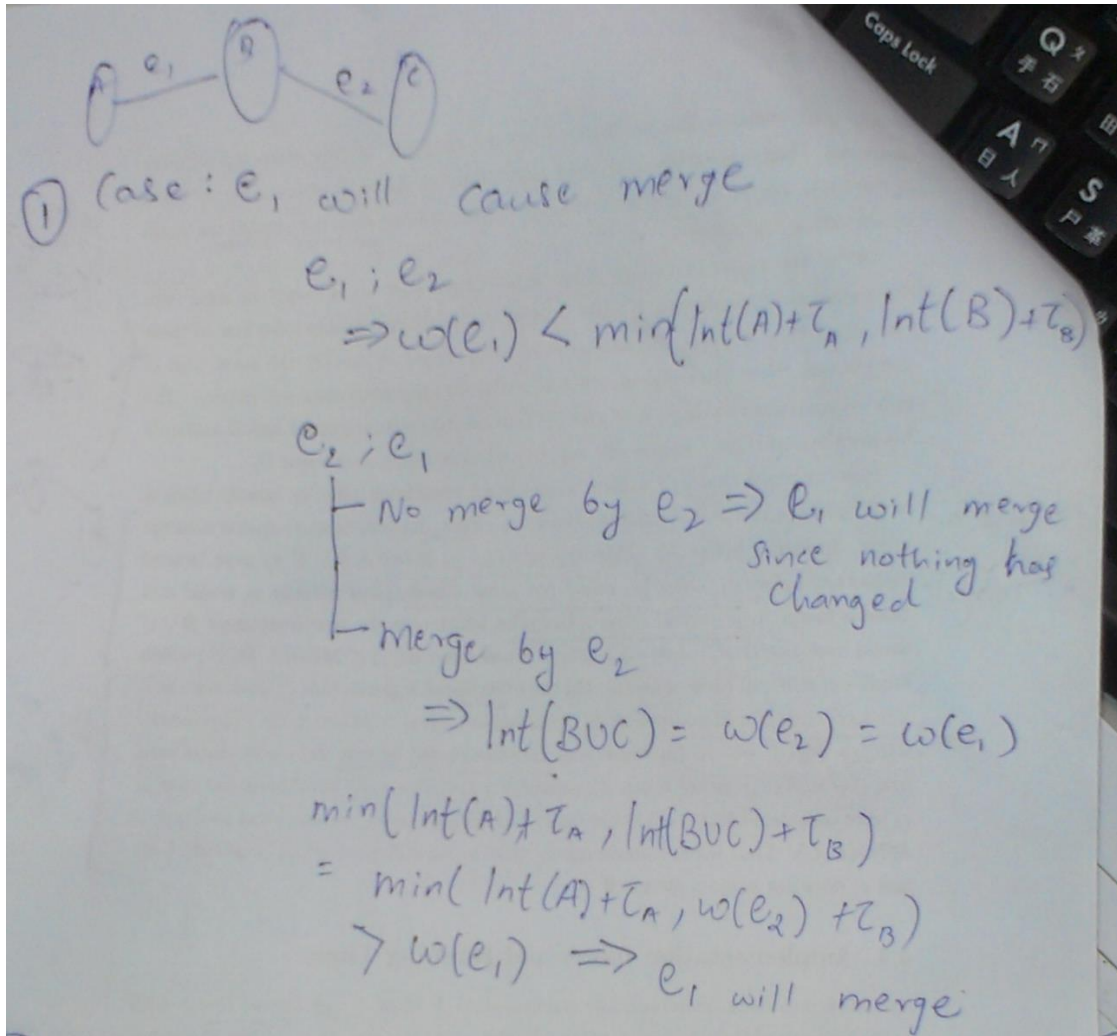 A e₁ B e₂ C
① Case: e₁ will cause merge
e₁ ; e₂
⇒ w(e₁) < min(Int(A)+τ_A, Int(B)+τ_B)
e₂ ; e₁
No merge by e₂ ⇒ e₁ will merge
since nothing has
changed
merge by e₂
⇒ Int(B∪C) = w(e₂) = w(e₁)
min(Int(A)+τ_A, Int(B∪C)+τ_B)
= min(Int(A)+τ_A, w(e₂)+τ_B)
> w(e₁) ⇒ e₁ will merge
Caps Lock
Q 手 石
A 日 人
S 尸 革